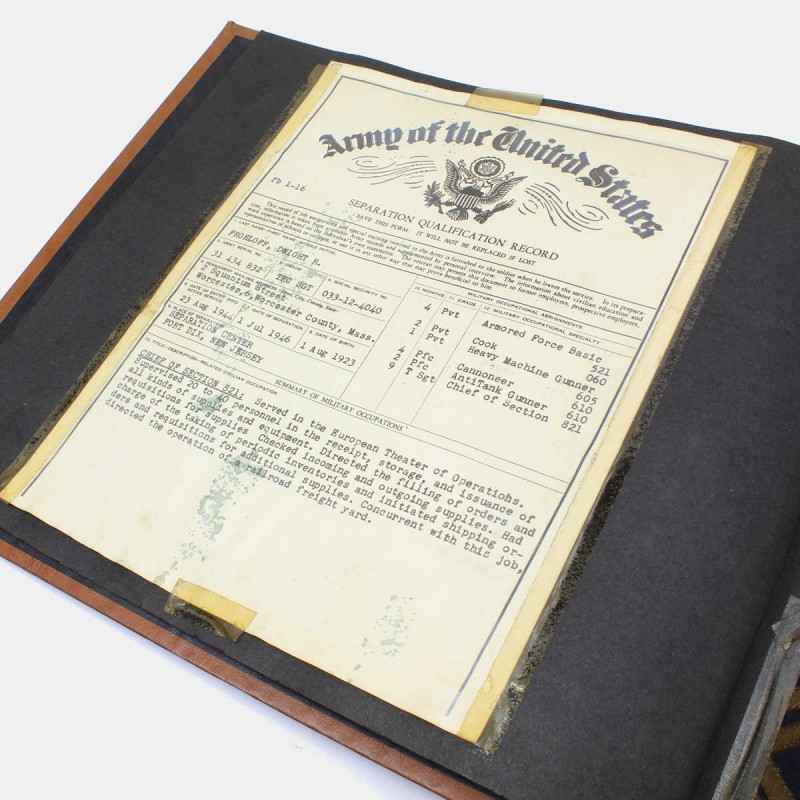 Army of the United States
rb 1-16
SEPARATION QUALIFICATION RECORD
SAVE THIS FORM. IT WILL NOT BE REPLACED IF LOST
This record of job assignments and special training received in the Army is furnished to the soldier when he leaves the service. In its prepara-
tion, information is taken from available Army records and supplemented by personal interview. The information about civilian education and
work experience is based on the individual's own statements. The veteran may present this document to former employers, prospective employers,
representatives of schools or colleges, or use it in any other way that may prove beneficial to him.
1. LAST NAME—FIRST NAME—MIDDLE INITIAL
FROHLOFF, DWIGHT R.
2. ARMY SERIAL NO. 3. GRADE 4. SOCIAL SECURITY NO.
31 434 832 TEC SGT 033-12-4040
2 Squantum Street
Worcester,6,Worcester County, Mass.
6. DATE OF ENTRY INTO ACTIVE SERVICE 7. DATE OF SEPARATION 8. DATE OF BIRTH
23 Aug 1944 1 Jul 1946 1 Aug 1923
9. PLACE OF SEPARATION
SEPARATION CENTER
FORT DIX, NEW JERSEY
MILITARY OCCUPATIONAL ASSIGNMENTS
10. MONTHS 11. GRADE 12. MILITARY OCCUPATIONAL SPECIALTY
4 Pvt Armored Force Basic 521
2 Pvt Cook 060
1 Pvt Heavy Machine Gunner 605
4 Pfc Cannoneer 610
2 Pfc AntiTank Gunner 610
9 T Sgt Chief of Section 821
SUMMARY OF MILITARY OCCUPATIONS
13. TITLE—DESCRIPTION—RELATED CIVILIAN OCCUPATION
CHIEF OF SECTION 821: Served in the European Theater of Operations.
Supervised 20 to personnel in the receipt, storage, and issuance of
all kinds of supplies and equipment. Directed the filling of orders and
requisitions for supplies Checked incoming and outgoing supplies. Had
charge of the taking of periodic inventories and initiated shipping or-
ders and requisitions for additional supplies. Concurrent with this job,
directed the operation of a railroad freight yard.